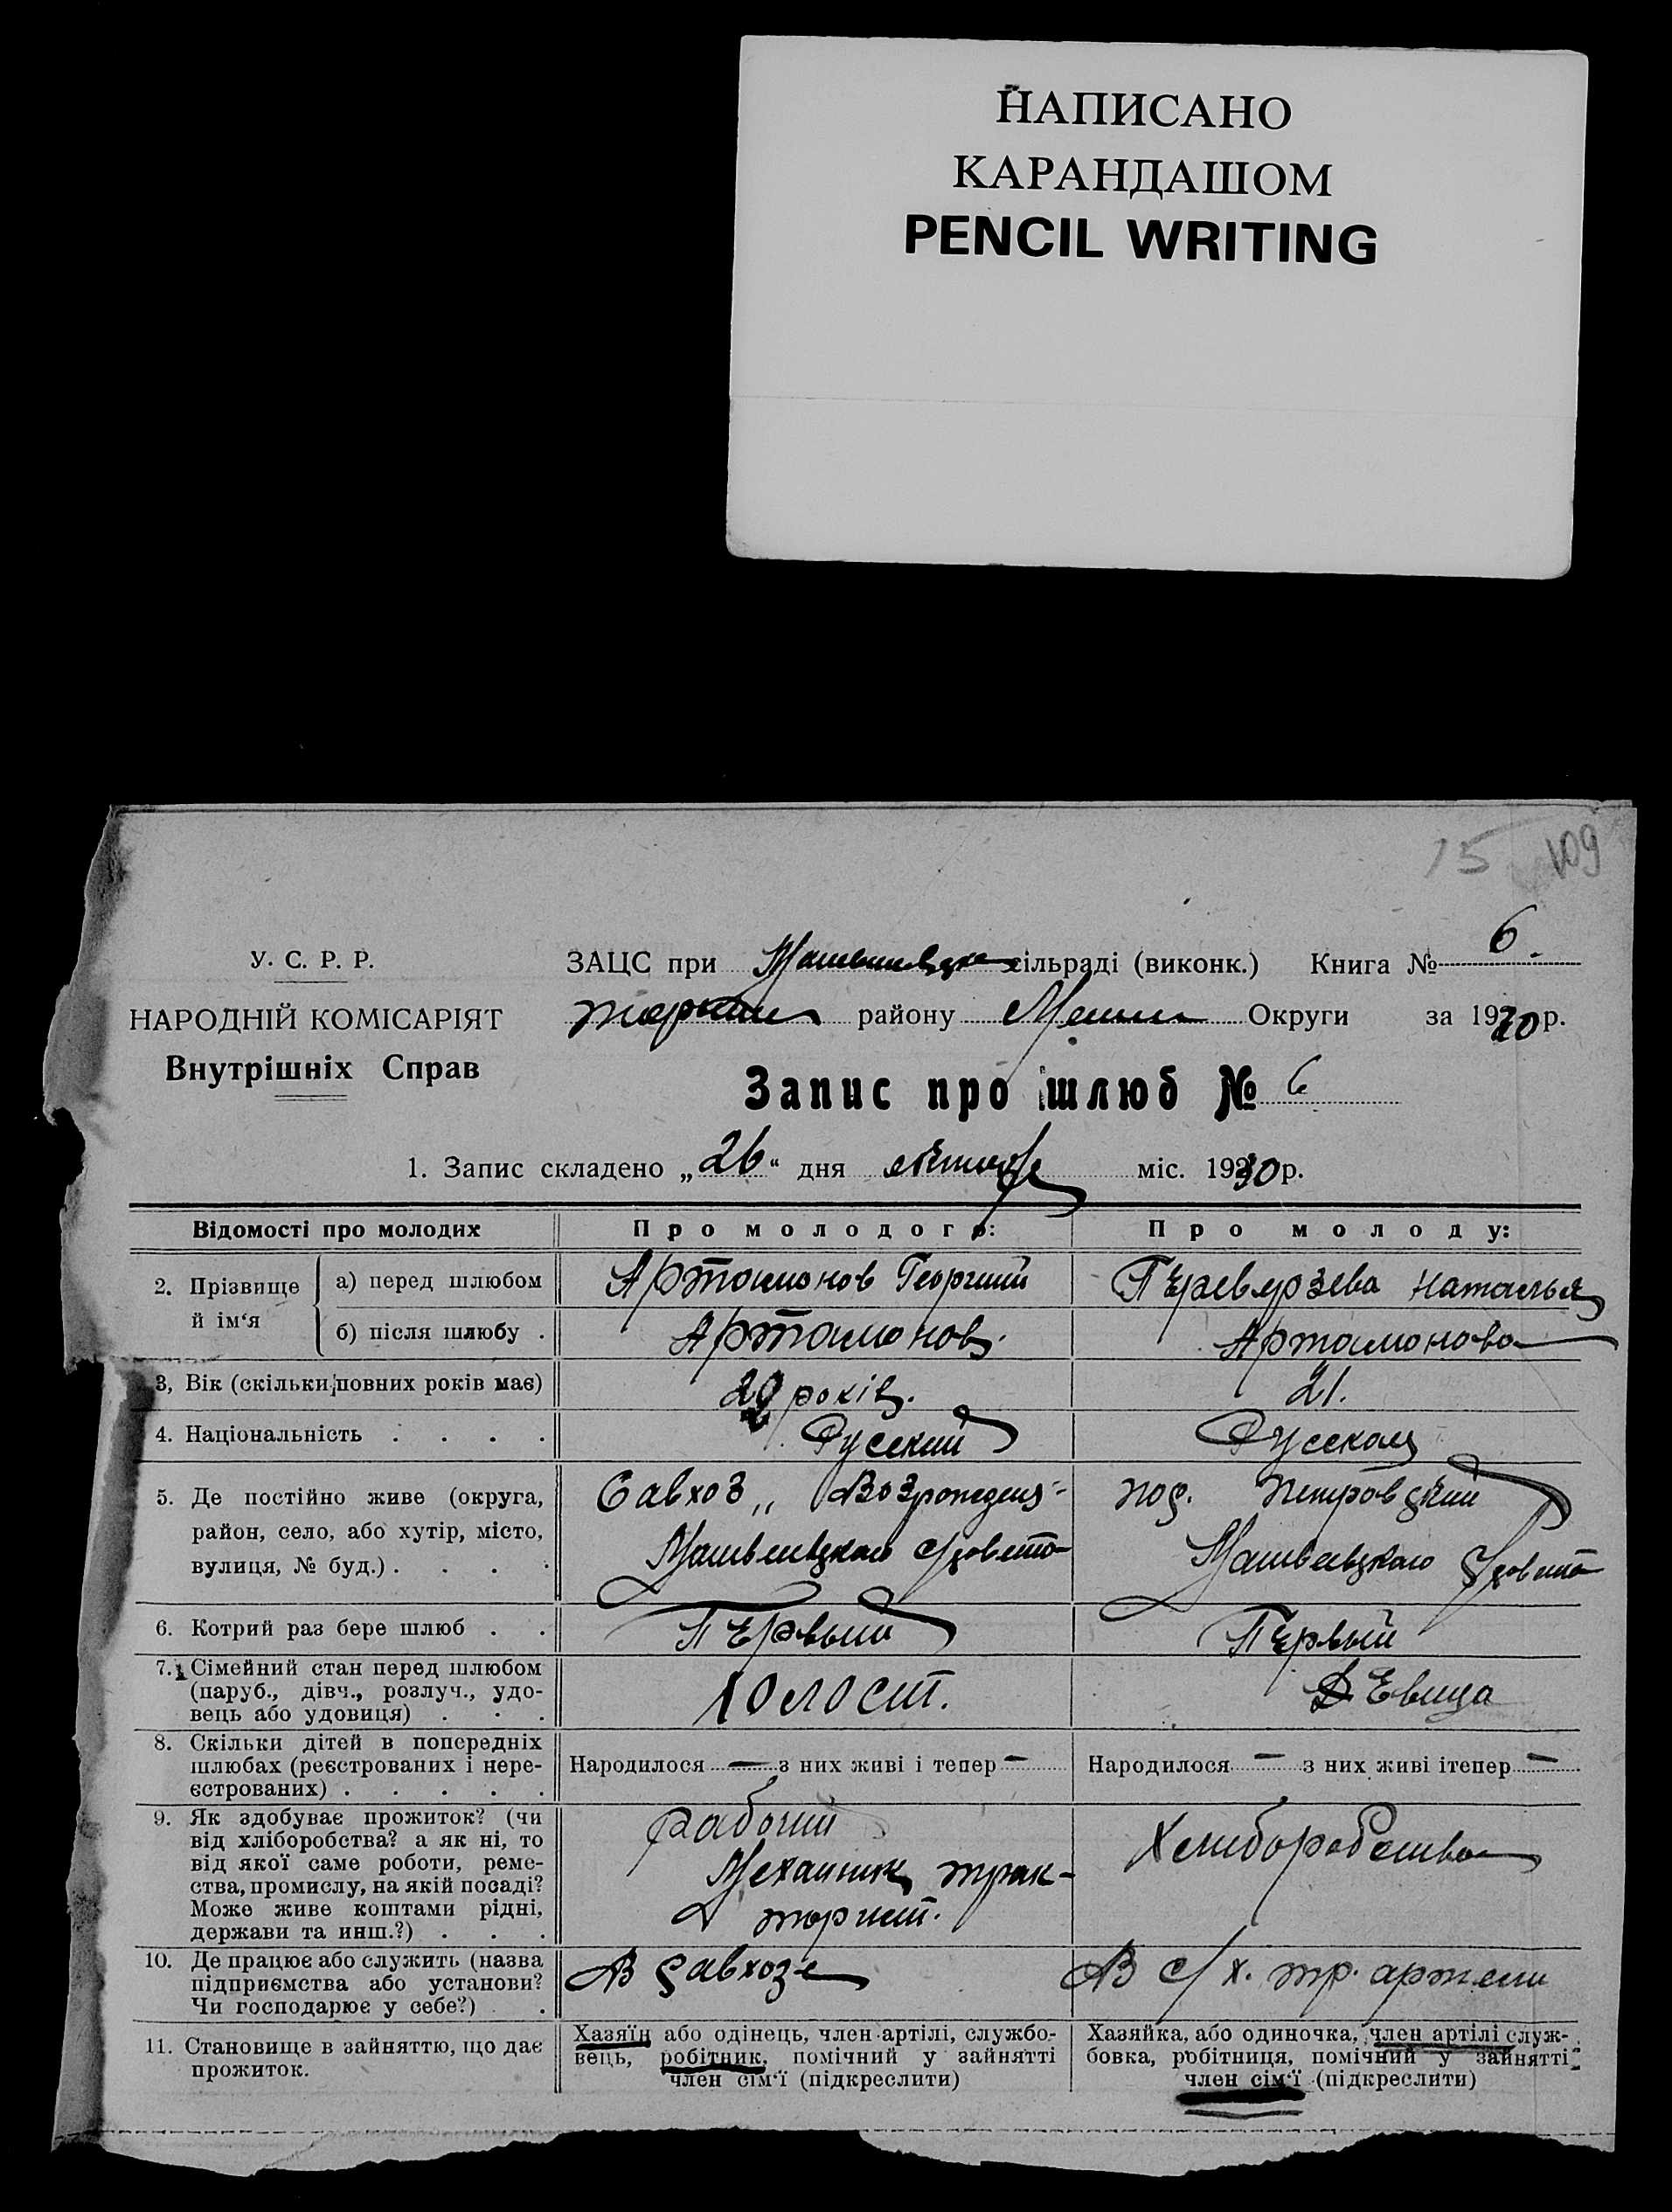 НАПИСАНО
КАРАНДАШОМ
PENCIL WRITING
15 109
У. С. Р. Р.
НАРОДНІЙ КОМІСАРІЯТ
Внутрішніх Справ
ЗАЦС при сільраді (виконк.) Книга № 6.
району Округи за 1930 р.
Запис про шлюб № 6
1. Запис складено „26“ дня міс. 1930 р.
Відомості про молодих Про молодого: Про молоду:
2. Прізвище й ім‘я
а) перед шлюбом Артамонов Георгий Перевярзева Наталья
б) після шлюбу . Артамонов. Артамонова
3, Вік (скільки повних років має) років. 21.
4. Національність . . . . Русский Русская
5. Де постійно живе (округа,
район, село, або хутір, місто,
вулиця, № буд.) . . . .
Савхоз „Возрожден
Матвеевского с/совета
пос. Петровский
Матвеевского с/совета
6. Котрий раз бере шлюб . . Первый Первый
7. Сімейний стан перед шлюбом
(паруб., дівч., розлуч., удо-
вець або удовиця) . . .
Холост. Девица
8. Скільки дітей в попередніх
шлюбах (реєстрованих і нере-
єстрованих) . . . . .
Народилося — з них живі і тепер — Народилося — з них живі ітепер —
9. Як здобуває прожиток? (чи
від хліборобства? а як ні, то
від якої саме роботи, реме-
ства, промислу, на якій посаді?
Може живе коштами рідні,
держави та инш.?) . . .
Рабочий
Механик трак-
торист.
Хлиборобства
10. Де працює або служить (назва
підприємства або установи?
Чи господарює у себе?) . .
В савхозе В с/х. тр. артели
11. Становище в зайняттю, що дає
прожиток.
Хазяїн або одінець, член артілі, службо-
вець, робітник, помічний у зайнятті
член сім‘ї (підкреслити)
Хазяйка, або одиночка, член артілі служ-
бовка, робітниця, помічний у зайнятті
член сім‘ї (підкреслити)